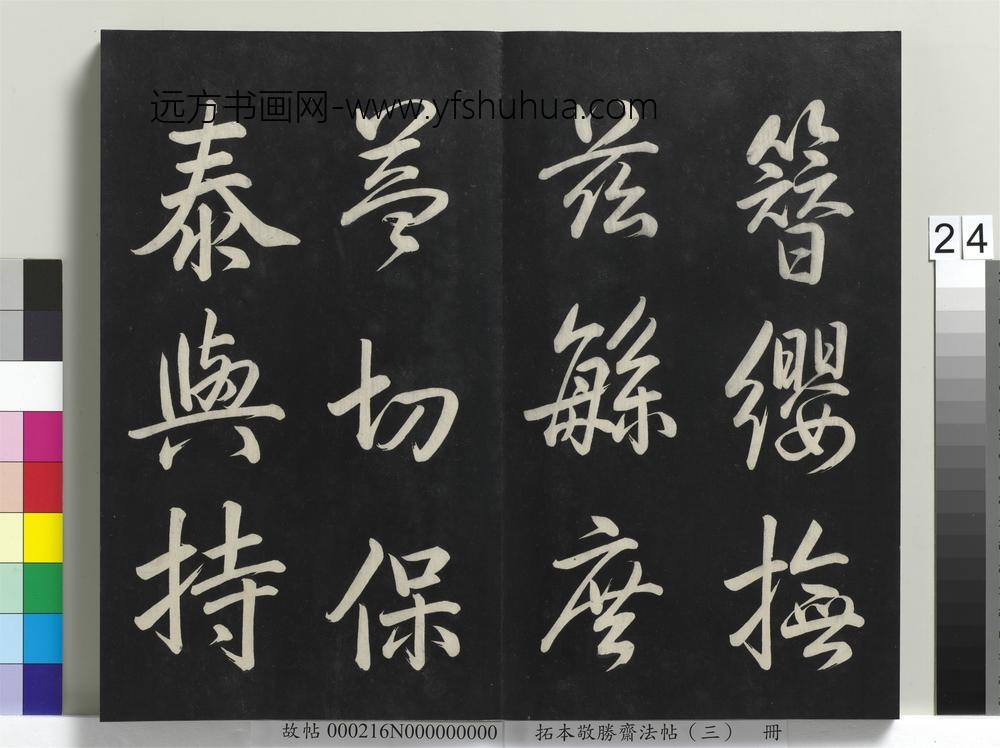 远方书画网-www.yfshuhua.com
簪纓撫
茲緐庶
益切保
泰與持
24
故帖 000216N000000000 拓本敬勝齋法帖（三） 冊